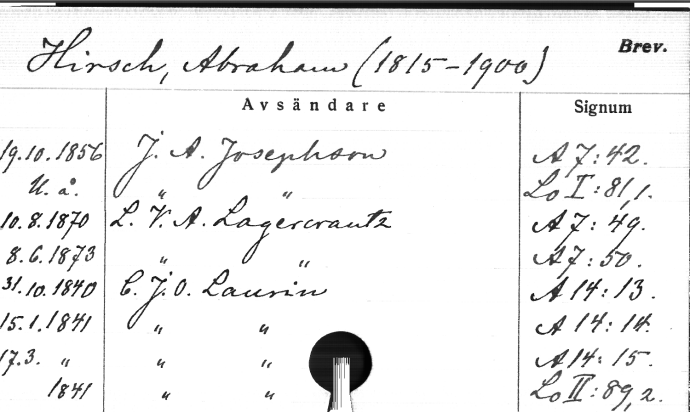 Hirsch, Abraham (1815-1900) Brev.
Avsändare Signum
19.10.1856 J. A. Josephson A 7:42.
U. å. " " Lo I:81,1.
10.8.1870 L. V. A. Lagercrantz A 7:49.
8.6.1873 " " A 7:50.
31.10.1840 C. J. O. Laurin A 14:13.
15.1.1841 " " A 14:14.
17.3. " " " A 14:15.
1841 " " Lo II:89,2.